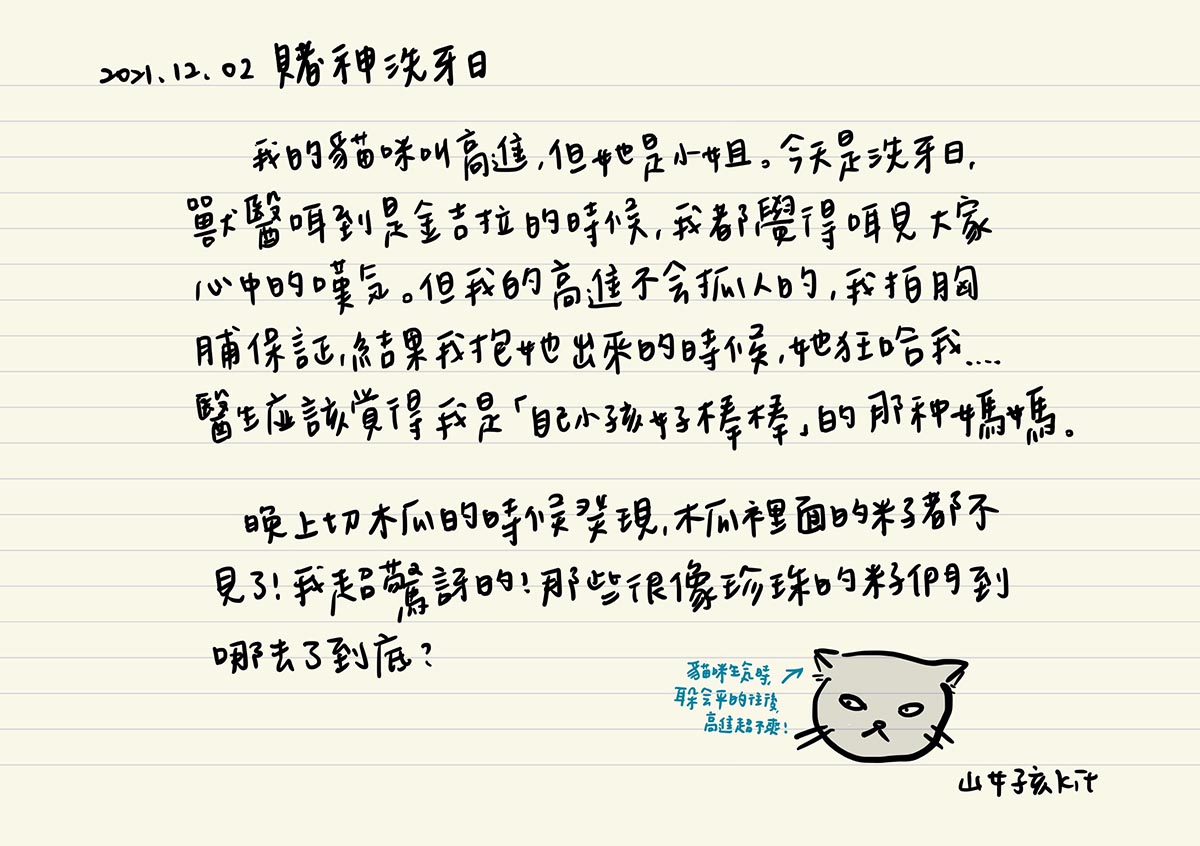 2021.12.02 賭神洗牙日
我的貓咪叫高進,但她是小姐。今天是洗牙日,
獸醫咡到是金吉拉的時候,我都覺得咡見大家
心中的嘆気。但我的高進不会抓人的,我拍胸
脯保証,結果我抱她出來的時候,她狂哈我....
醫生应該覚得我是「自己小孩好棒棒」的那种媽媽。
晚上切木瓜的時候発現,木瓜裡面的籽都不
見了!我超驚訝的!那些很像珍珠的籽們到
哪去了到底?
貓咪生気時,
耳朵会平的往後,
高進超不爽!
山女孩kit